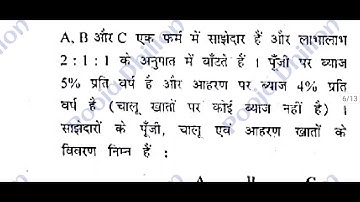 A, B और C एक फर्म में साझेदार हैं और लाभालाभ
2 : 1 : 1 के अनुपात में बाँटते हैं । पूँजी पर ब्याज
5% प्रति वर्ष है और आहरण पर ब्याज 4% प्रति
वर्ष है (चालू खातों पर कोई ब्याज नहीं है) ।
6/13
साझेदारों के पूँजी, चालू एवं आहरण खातों के
विवरण निम्न हैं :
A B C